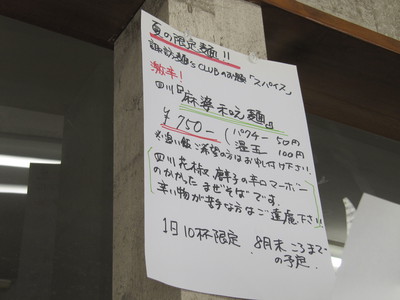 夏の限定麺!!
諏訪麺's CLUBのお題「スパイス」
激辛!
四川『麻婆和え麺』
¥750- (パクチー 50円
温玉 100円
※追い飯ご希望の方はお申し付け下さい。
四川花椒、唐辛子の辛口マーボー
のかかったまぜそばです。
辛い物が苦手な方はご遠慮下さい!!
1日10杯限定 8月末ころまで
の予定